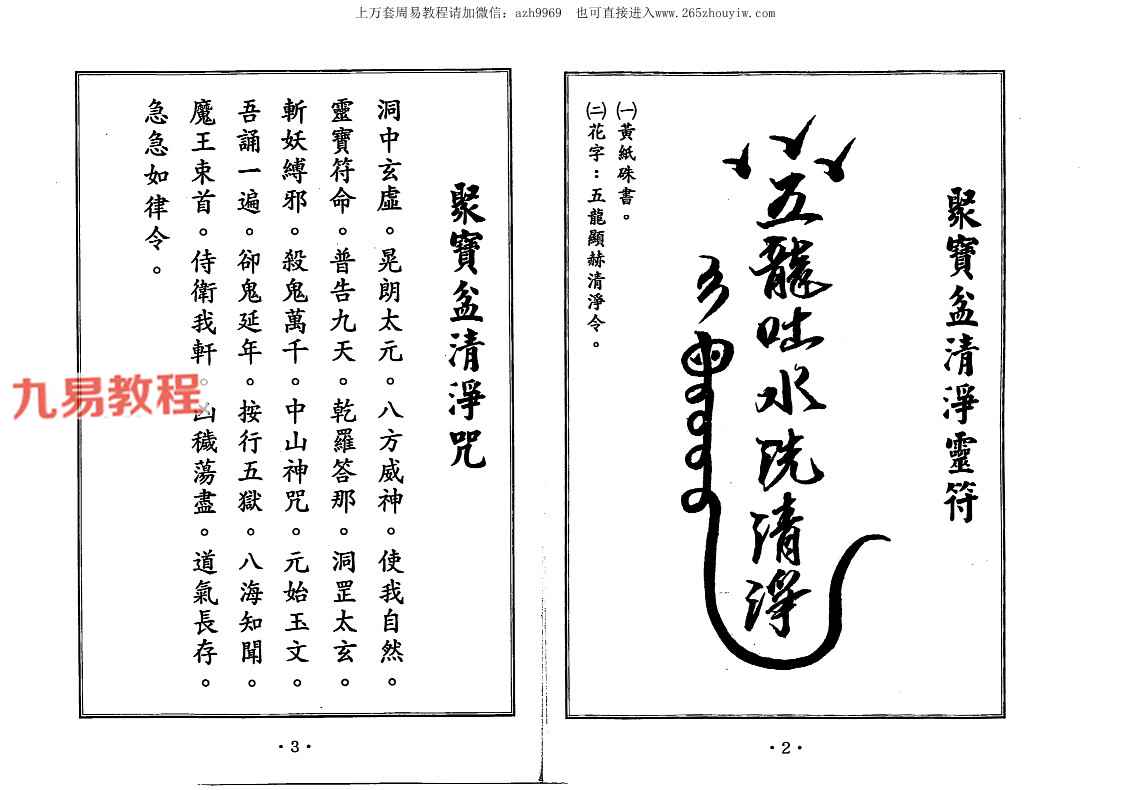 上万套周易教程请加微信：azh9969　也可直接进入www.265zhouyiw.com
聚寶盆清淨靈符
五龍吐水洗清淨
㈠黃紙硃書。
㈡花字：五龍顯赫清淨令。
·2·
聚寶盆清淨咒
洞中玄虛。晃朗太元。八方威神。使我自然。
靈寶符命。普告九天。乾羅答那。洞罡太玄。
斬妖縛邪。殺鬼萬千。中山神咒。元始玉文。
吾誦一遍。卻鬼延年。按行五獄。八海知聞。
魔王束首。侍衛我軒。凶穢蕩盡。道氣長存。
急急如律令。
·3·
九易教程